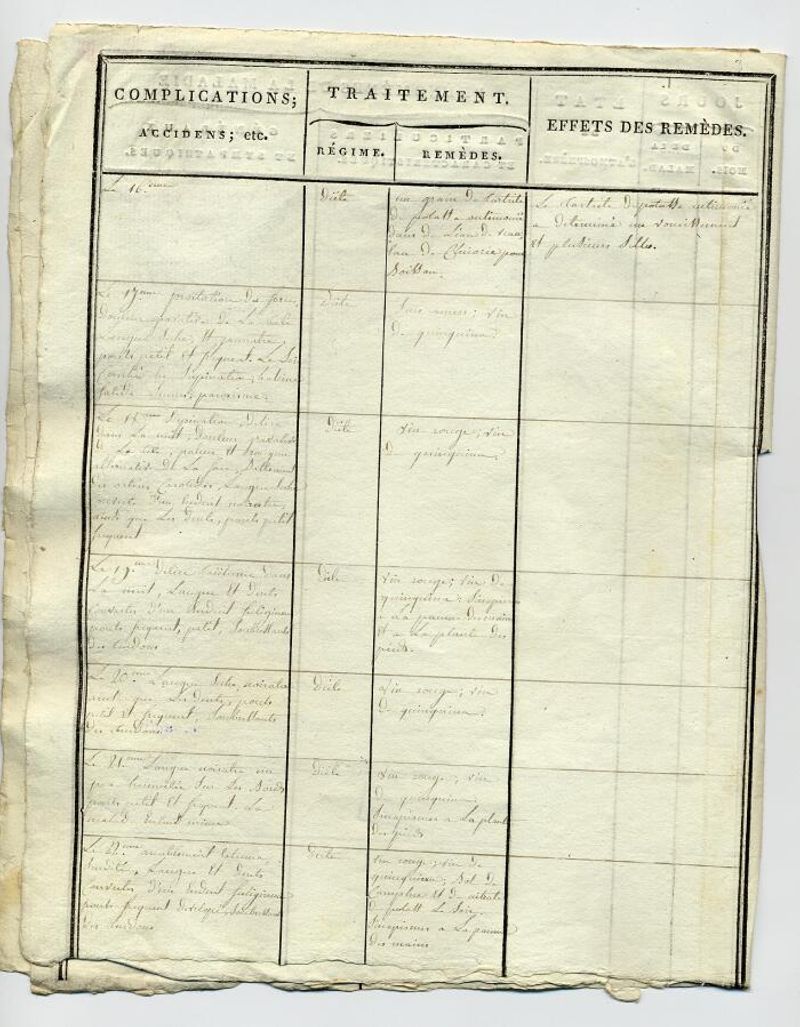 COMPLICATIONS;
ACCIDENS; etc.
TRAITEMENT.
RÉGIME.
REMÈDES.
EFFETS DES REMÈDES.
Le 16.eme
diète
un grain de tartrite
de potasse antimonié
dans de l'eau de veau,
eau de Chicorée pour
boisson.
Le tartrite de potasse antimonié
a déterminé un vomissement
et plusieurs selles.
Le 17eme prostration des forces,
douleur gravative de la tête
Langue sèche, et jaunatre,
pouls petit et fréquent. Le Soir
diète
vin
de quinquina.
Le
délire
dans La nuit, douleur gravative
de La tête, paleur et rougeur
alternative de La face, battement
des artères Carotides, Langue sèche
couverte d'un enduit noiratre,
ainsi que Les dents, pouls petit
fréquent
diète
vin rouge; vin
de quinquina.
Le 19.me délire taciturne dans
La nuit, Langue et dents
couvertes d'un enduit fuligineux
pouls fréquent, petit, Soubresauts
des tendons.
diète
vin rouge; vin de
quinquina; Sinapismes
a la paume des mains
et a La plante des
pieds.
Le 20.me Langue Sèche, noiratre
ainsi que Les dents, pouls
petit et fréquent, Soubresauts
des tendons
diète
vin rouge; vin
de quinquina.
Le 21.eme Langue noiratre un
peu humectée Sur Les Bords
pouls petit et fréquent. La
diète
vin rouge; vin
de quinquina,
Sinapismes a La plante
des pieds
Le 22.eme
Surdité, Langue et dents
couvertes d'un enduit fuligineux
pouls fréquent
Soubresauts
des tendons
diète
vin rouge; vin de
quinquina;
Camphre et de nitrate
de potasse Le Soir.
Sinapismes a La paume
des mains